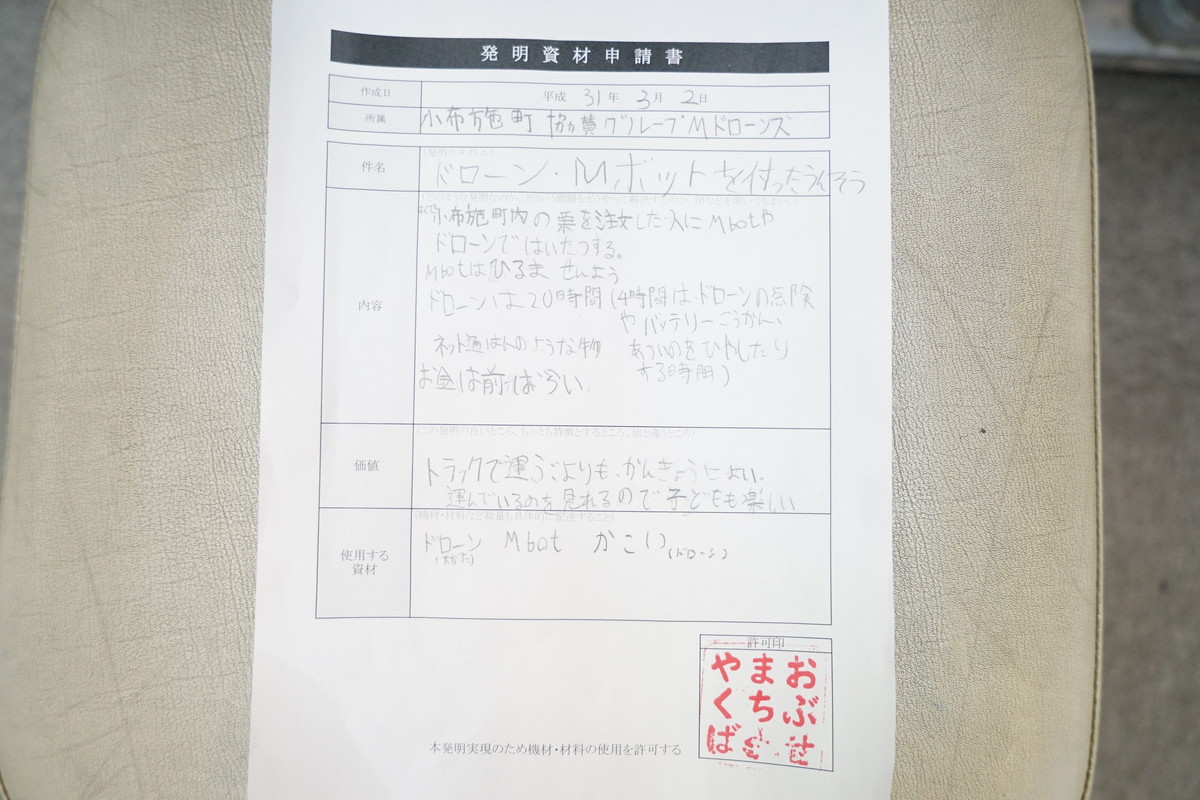 発明資材申請書
作成日 平成 31年 3月 2日
所属 小布施町 協賛グループMドローンズ
件名 (発明のタイトル)
ドローン・Mボットを付ったうんそう
内容
小布施町内の栗を注文した人にMbotや
ドローンではいたつする。
Mbotはひるませんよう
ドローンは20時間(4時間は・ドローンの点険
やバッテリーこうかん、
ネット通はんのような物 あついのをひやしたり
する時間)
お金は前ばらい.
価値 (この発明の良いところ、もっとも特徴とするところ、他と違うところ)
トラックで運ぶよりも、かんきょうによい.
運んでいるのを見れるので子どもも楽しい
使用する資材 (機材・材料など数量も具体的に記述すること)
ドローン Mbot かこい(ドローン)
許可印
おぶせ
まち
やくば
本発明実現のため機材・材料の使用を許可する